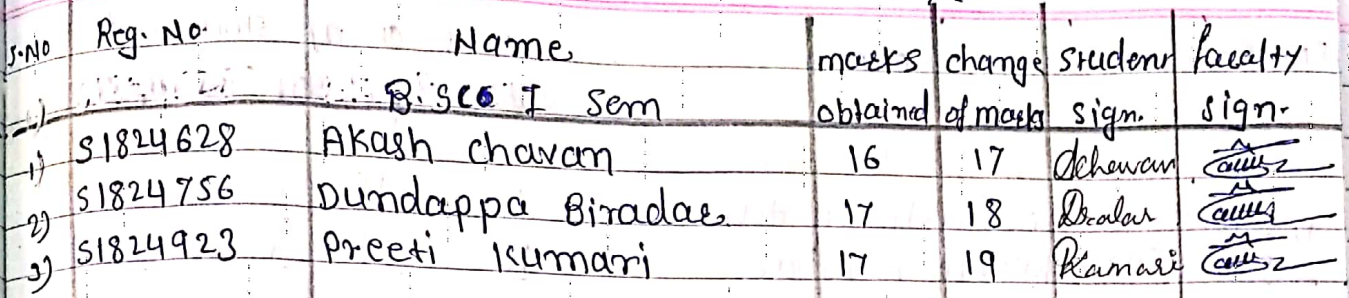 S.No Reg. No. Name marks obtained change of marks student sign. facalty sign.
B.sco I sem
1) S1824628 Akash chavan 16 17 Achavan
2) S1824756 Dundappa Biradar 17 18
3) S1824923 Preeti Kumari 17 19 Pkamari